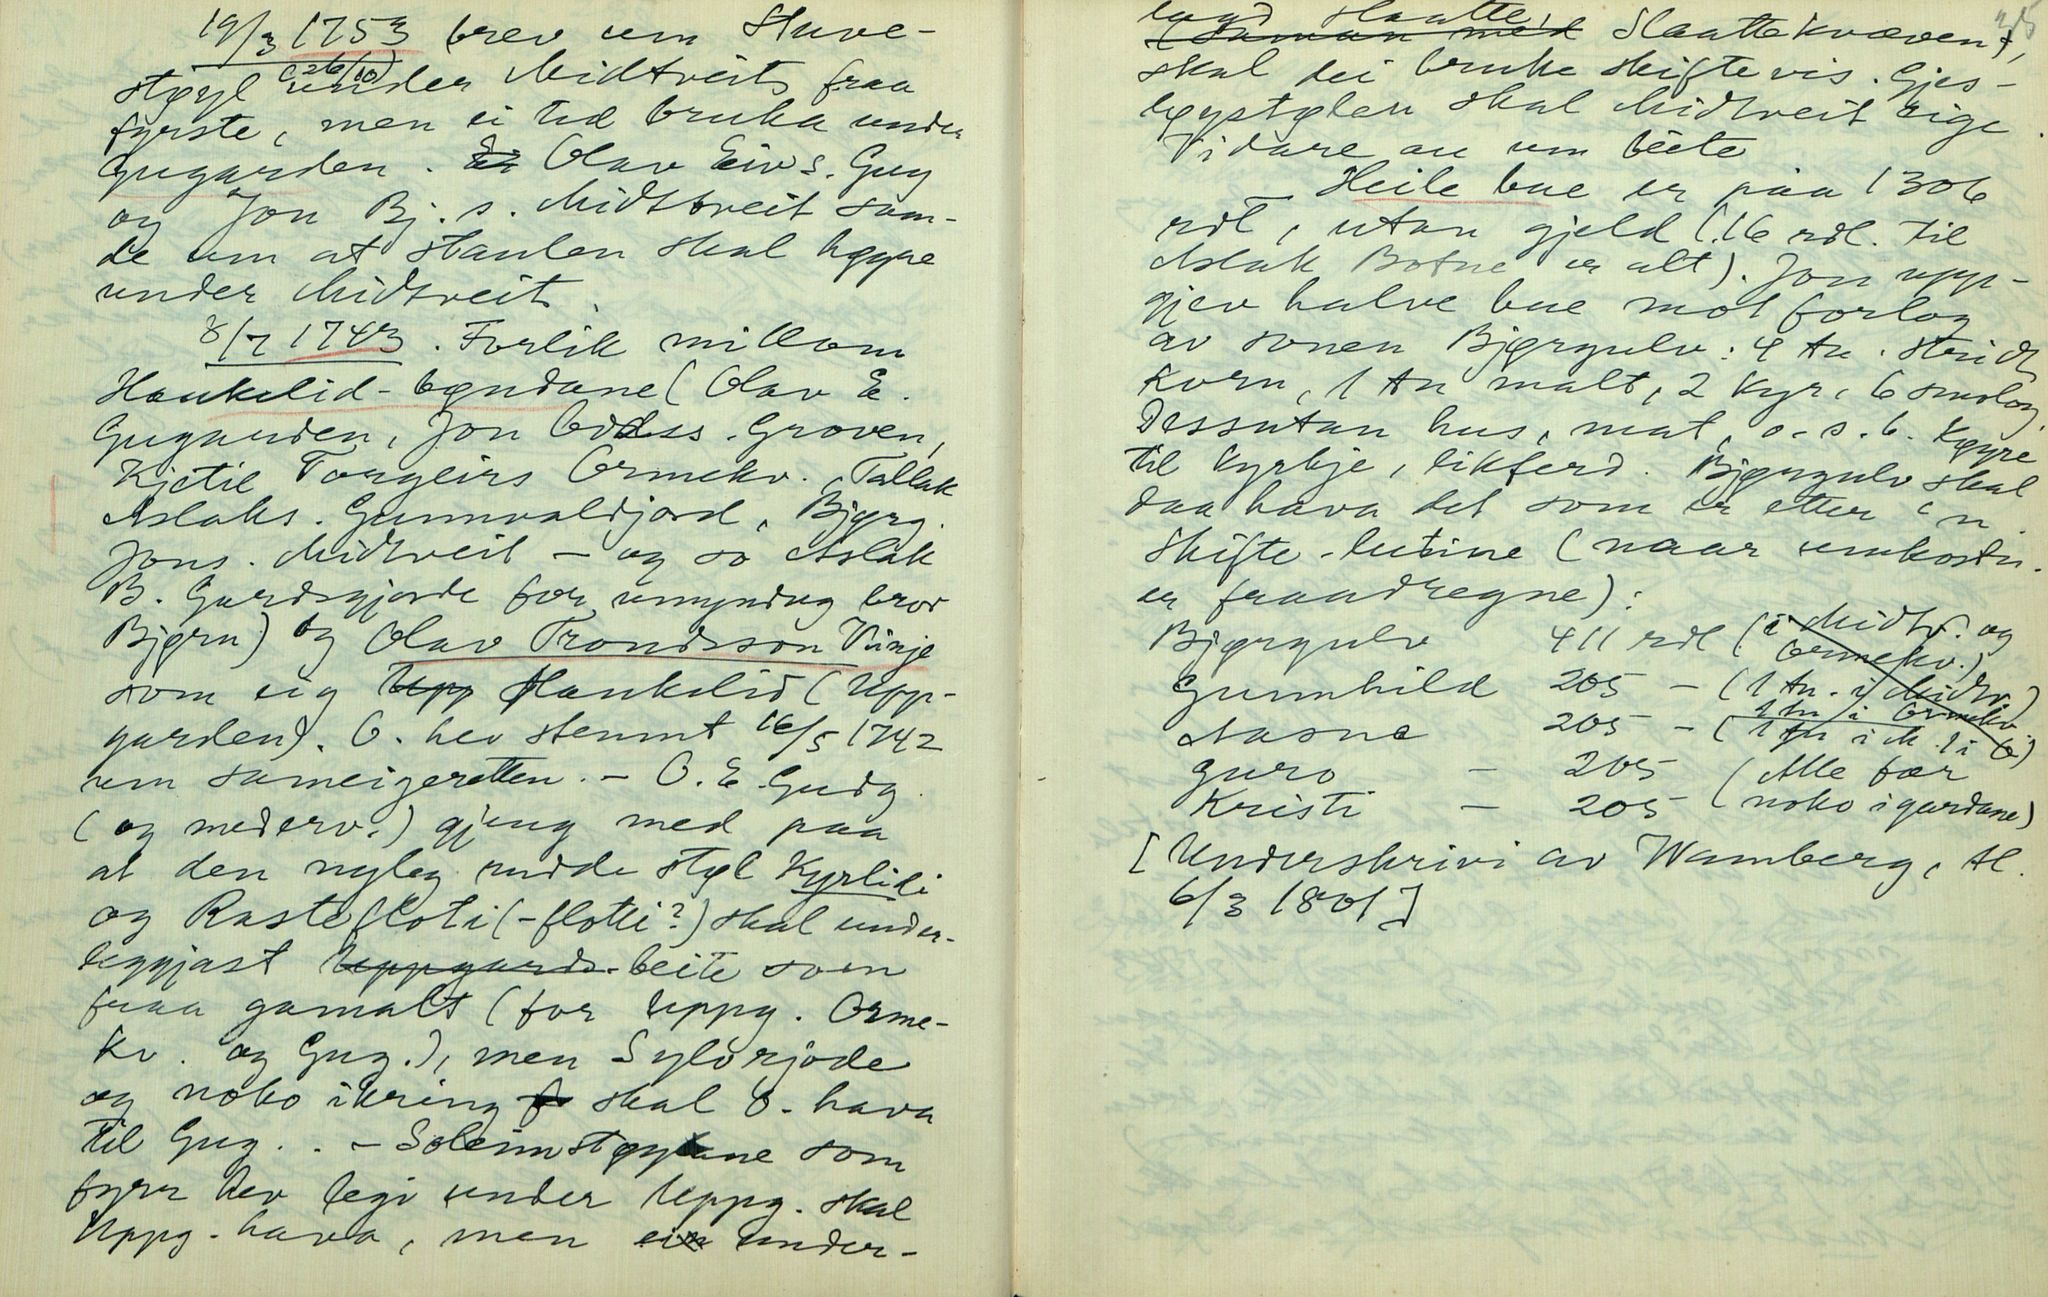 19/3 1753 brev um Stuve-
støyl (26/10) under Midtveit, fraa
fyrste, men ei tid bruka under
Gugarden. Olav Eivs. Gug
og Jon Bj. s. Midtveit sam-
de um at staulen skal høyre
under Midtveit.
8/7 1743. Forlik millom
Haukelid-bøndane (Olav E.
Gugarden, Jon Groven,
Kjetil Torgeirs Ormekv. Tallak
Aslaks. Gunnvaldjord, Bjørg.
Jons. Midtveit - og so Aslak
B. Gardsgjorde for umyndug bror
Bjørn) og Olav Trondsson Vinje
som eig Upp Haukelid (Upp-
garden). O. hev stemnt 16/5 1742
um sameigeretten. - O. E. Gudg.
(og mederv.) gjeng med paa
at den nyleg rudde støl Kyrlidi
og Rastefloti (-flotti?) skal under-
leggjast Uppgards-beite som
fraa gamalt (for Uppg. Orme-
kv. og Gug.), men Sylvrjode
og noko ikring skal O. hava
til Gug. . - Soleimstøylane som
fyrr hev legi under Uppg. skal
Uppg. hava, men ein under-
35
lagd Slaatte,
(Saman med Slaattekvæven),
skal dei bruke skiftevis. Gjes-
løystølen skal Midtveit eige.
Vidare au um beite
- Heile bue er paa 1306
rdl, utan gjeld (16 rdl. til
Aslak Botne er alt). Jon upp-
gjev halve bue mot forlog
av sonen Bjørgulv: 4 tn. stridt
korn, 1 tn malt, 2 kyr, 6 smalog.
Dessutan hus, mat, o. s. b. Køyre
til kyrkje, likferd. Bjørgulv skal
daa hava det som er etter 'n.
Skifte-lutine (naar umkostn.
er fraadregne):
Bjørgulv 411 rdl (i Midtv. og
Ormekv.)
Gunnhild 205 - (1 tn. i Midtv.)
1 tn i Ormekv.
Aasne 205 - (1 tn i M. 1 i O)
Guro - 205 (Alle fær
Kristi - 205 (noko i gardane)
[Underskrivi av Wamberg, H.
6/3 1801]